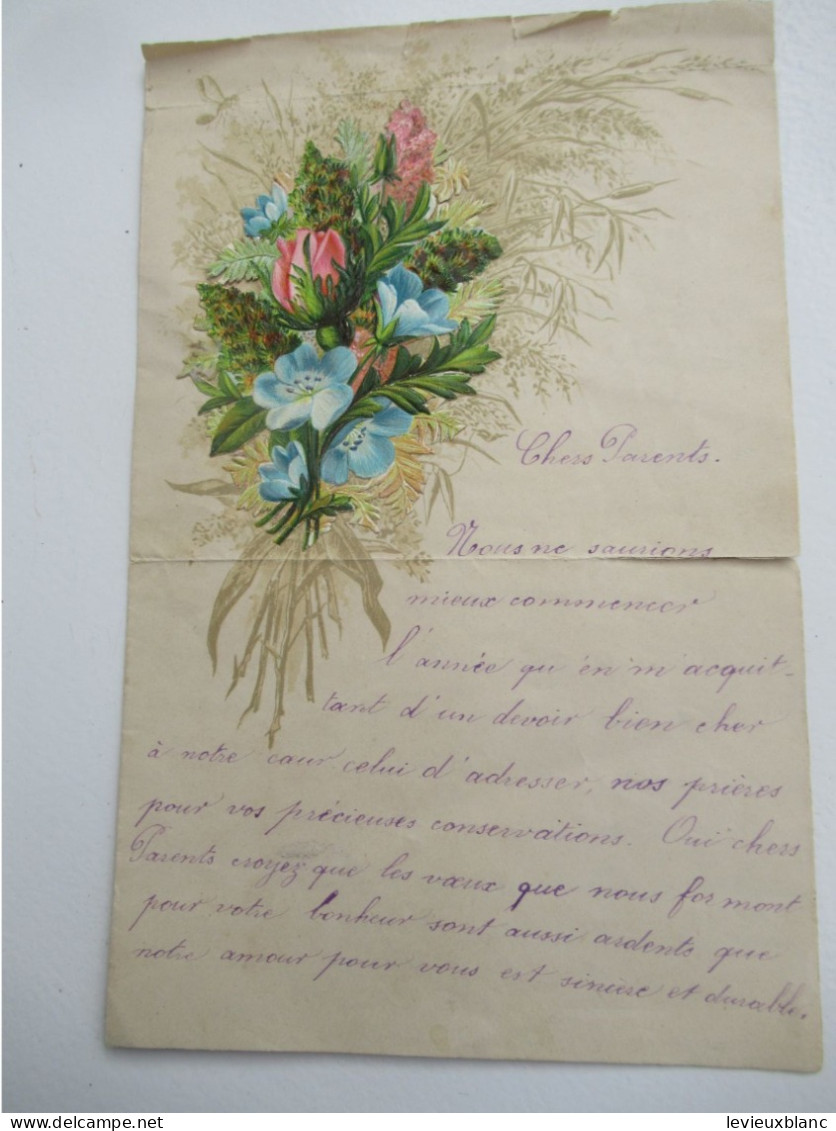 Chers Parents.
Nous ne saurions
mieux commencer
l'année qu'en m'acquit-
tant d'un devoir bien cher
à notre cœur celui d'adresser, nos prières
pour vos précieuses conservations. Oui chers
Parents croyez que les vœux que nous formont
pour votre bonheur sont aussi ardents que
notre amour pour vous est sincère et durable.
levieuxblanc